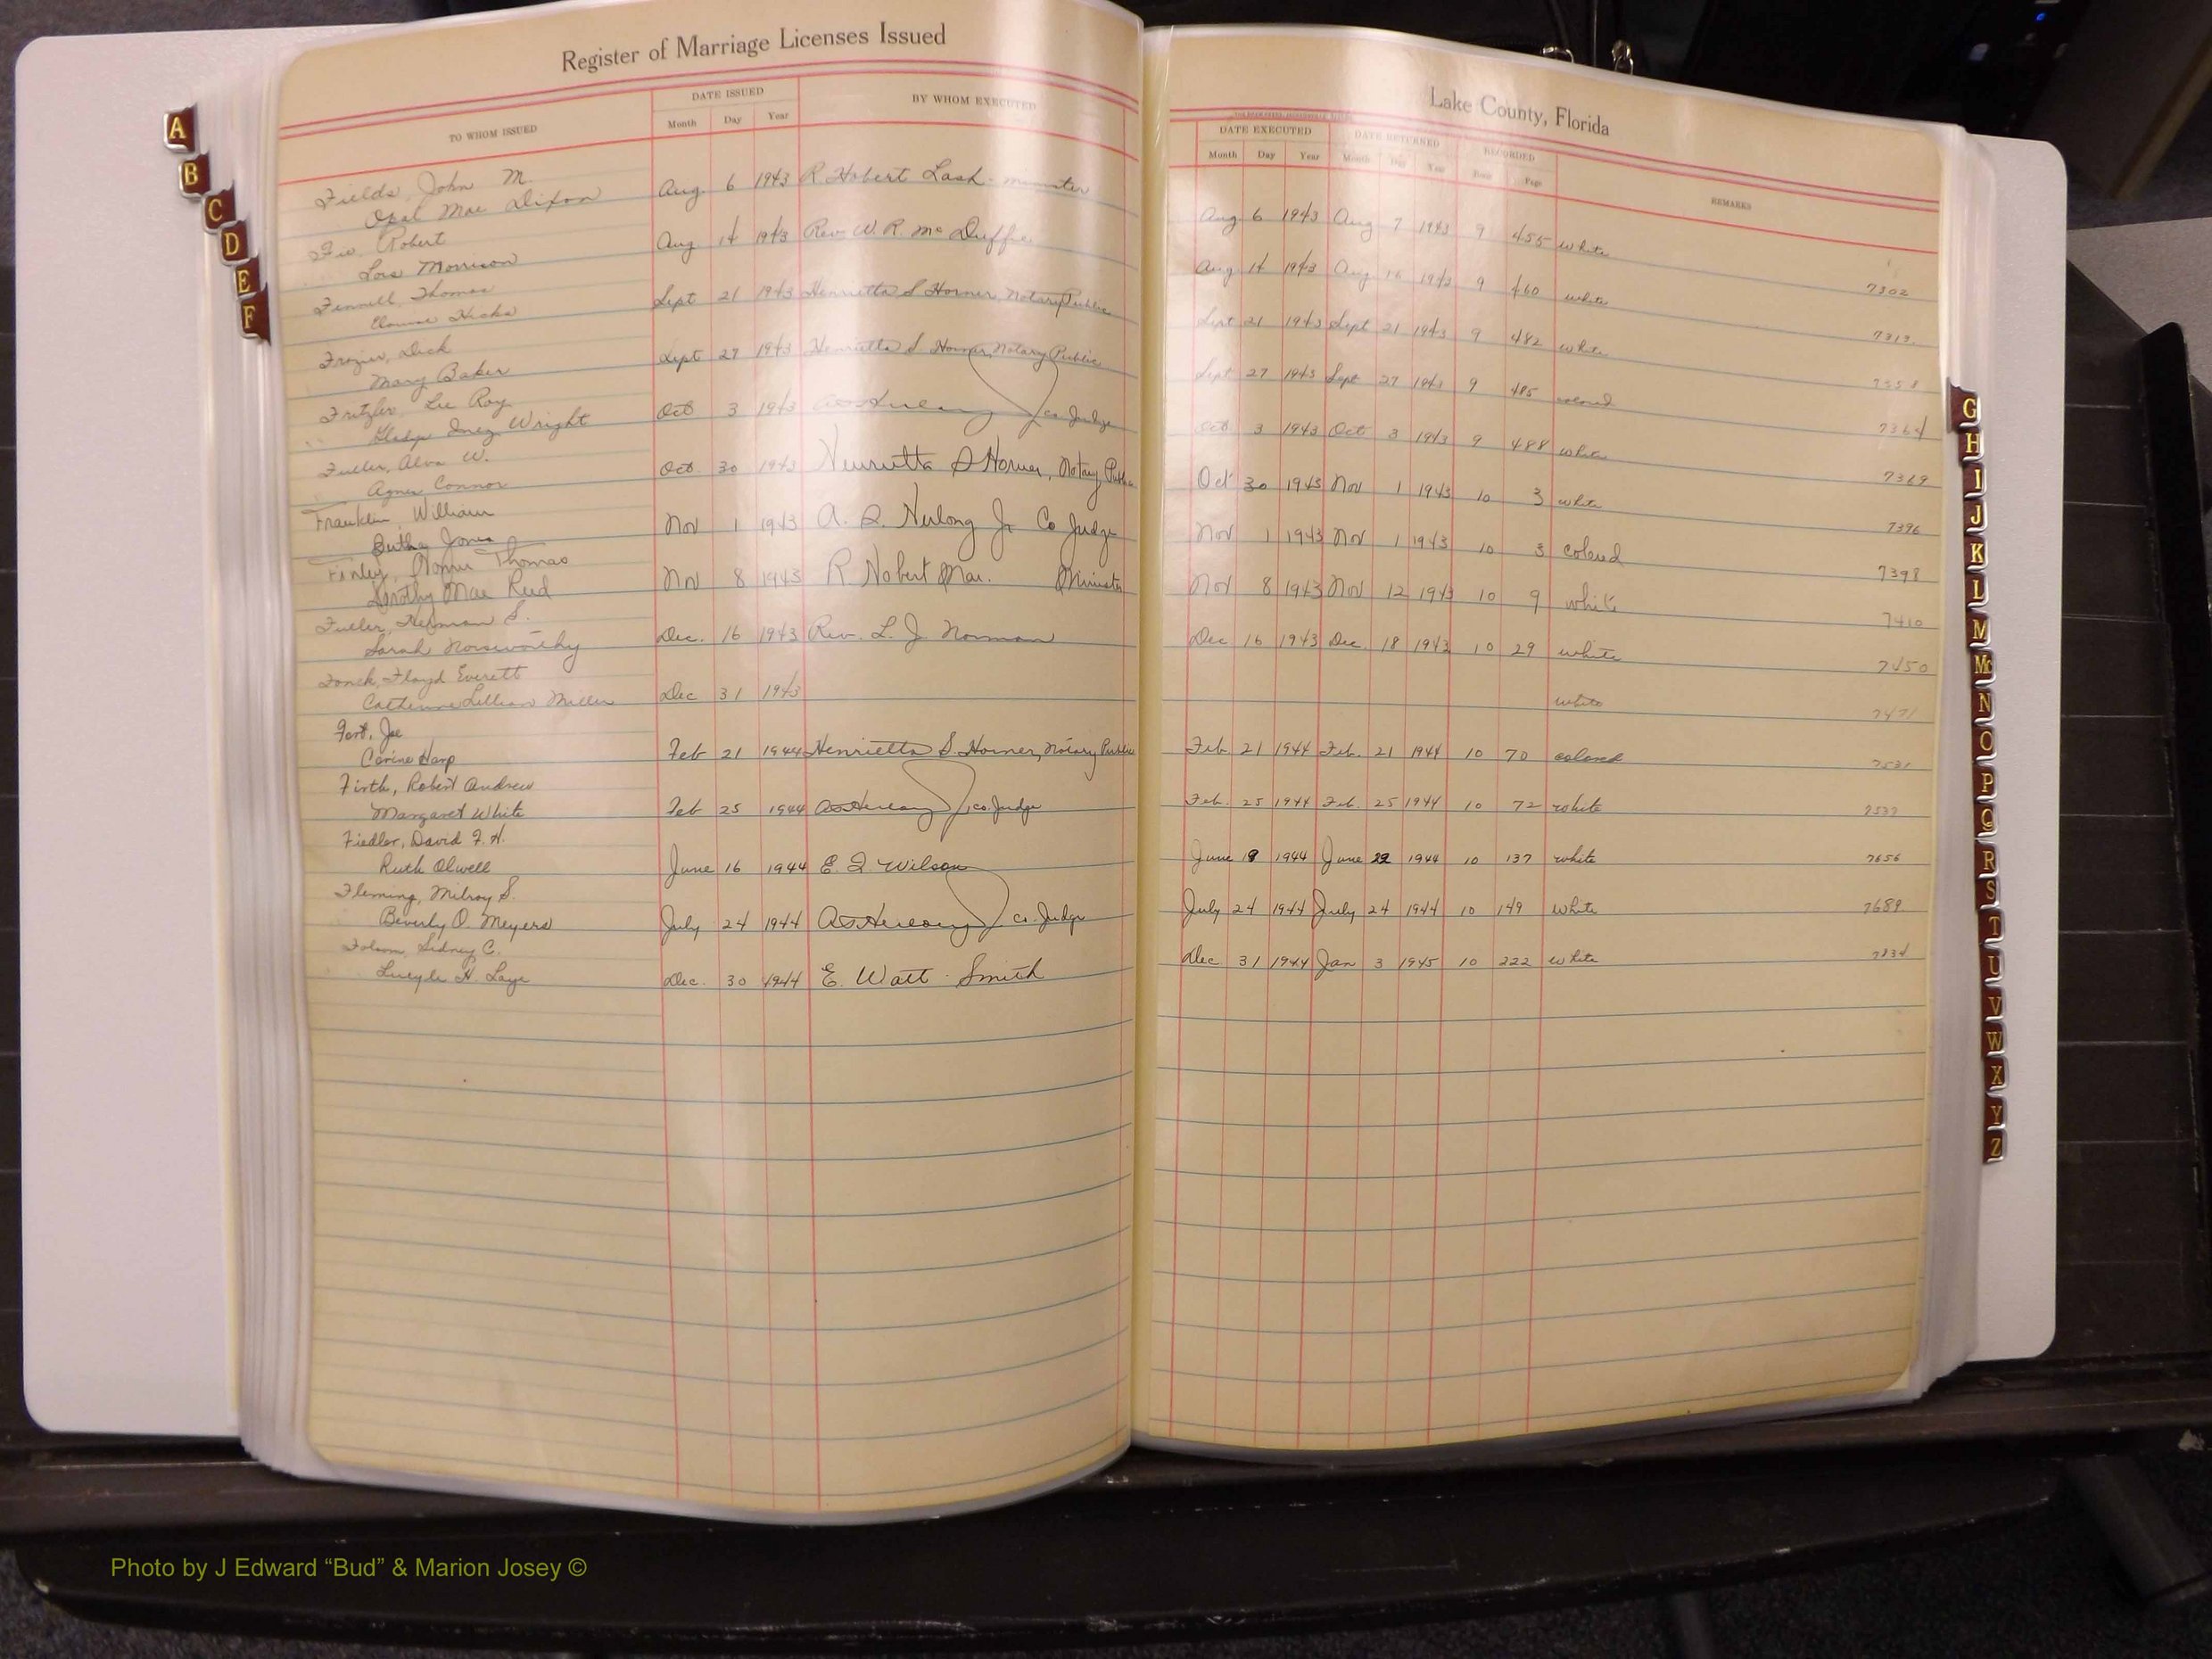 Register of Marriage Licenses Issued
TO WHOM ISSUED
DATE ISSUED
Month Day Year
BY WHOM EXECUTED
Fields, John M.
Opal Mae Dixon Aug. 6 1943 R Hobert Lash - minister
Robert
Lois Morrison Aug. 14 1943 Rev. W. R. Mc Duffie
Fennell, Thomas
Hicks Sept 21 1943 Henrietta S Horner, Notary Public
Frazier, Dick
Mary Baker Sept 27 1943 Henrietta S Horner, Notary Public
Fritzler, Lee Roy
Gladys Inez Wright Oct 3 1943 Co Judge
Fuller, Alva W.
Agnes Connor Oct. 30 1943 Henrietta S Horner, Notary Public
Franklin, William
Jones Nov 1 1943 A. S. Herlong Jr Co Judge
Finley, Thomas
Dorothy Mae Reed Nov 8 1943 R Hobert Minister
Fuller, Herman S.
Sarah Norsworthy Dec. 16 1943 Rev. L. J. Norman
Floyd Everett
Catherine Lillian Miller Dec 31 1943
Fort, Joe
Corine Harp Feb 21 1944 Henrietta S. Horner, Notary Public
Firth, Robert Andrew
Margaret White Feb 25 1944 co. Judge
Fiedler, David F. H.
Ruth Olwell June 16 1944 E. I. Wilson
Fleming, Milroy S.
Beverly O. Meyers July 24 1944 co. Judge
Folsom, Sidney C.
Lucyle H. Dec. 30 1944 E. Watt Smith
Lake County, Florida
DATE EXECUTED DATE RETURNED RECORDED
Month Day Year Month Day Year Book Page REMARKS
Aug 6 1943 Aug 7 1943 9 455 white 7302
Aug 14 1943 Aug 16 1943 9 460 white 7313
Sept 21 1943 Sept 21 1943 9 482 white
Sept 27 1943 Sept 27 1943 9 485 colored 7364
Oct 3 1943 Oct 3 1943 9 488 white 7369
Oct 30 1943 Nov 1 1943 10 3 white 7396
Nov 1 1943 Nov 1 1943 10 3 colored 7398
Nov 8 1943 Nov 12 1943 10 9 white 7410
Dec 16 1943 Dec. 18 1943 10 29 white 7450
white 7471
Feb. 21 1944 Feb. 21 1944 10 70 colored 7531
Feb. 25 1944 Feb. 25 1944 10 72 white 7537
June 19 1944 June 22 1944 10 137 white 7656
July 24 1944 July 24 1944 10 149 white 7689
Dec 31 1944 Jan 3 1945 10 222 white 7834
A
B
C
D
E
F
G
H
I
J
K
L
M
Mc
N
O
P
Q
R
S
T
U
V
W
X
Y
Z
Photo by J Edward “Bud” & Marion Josey ©